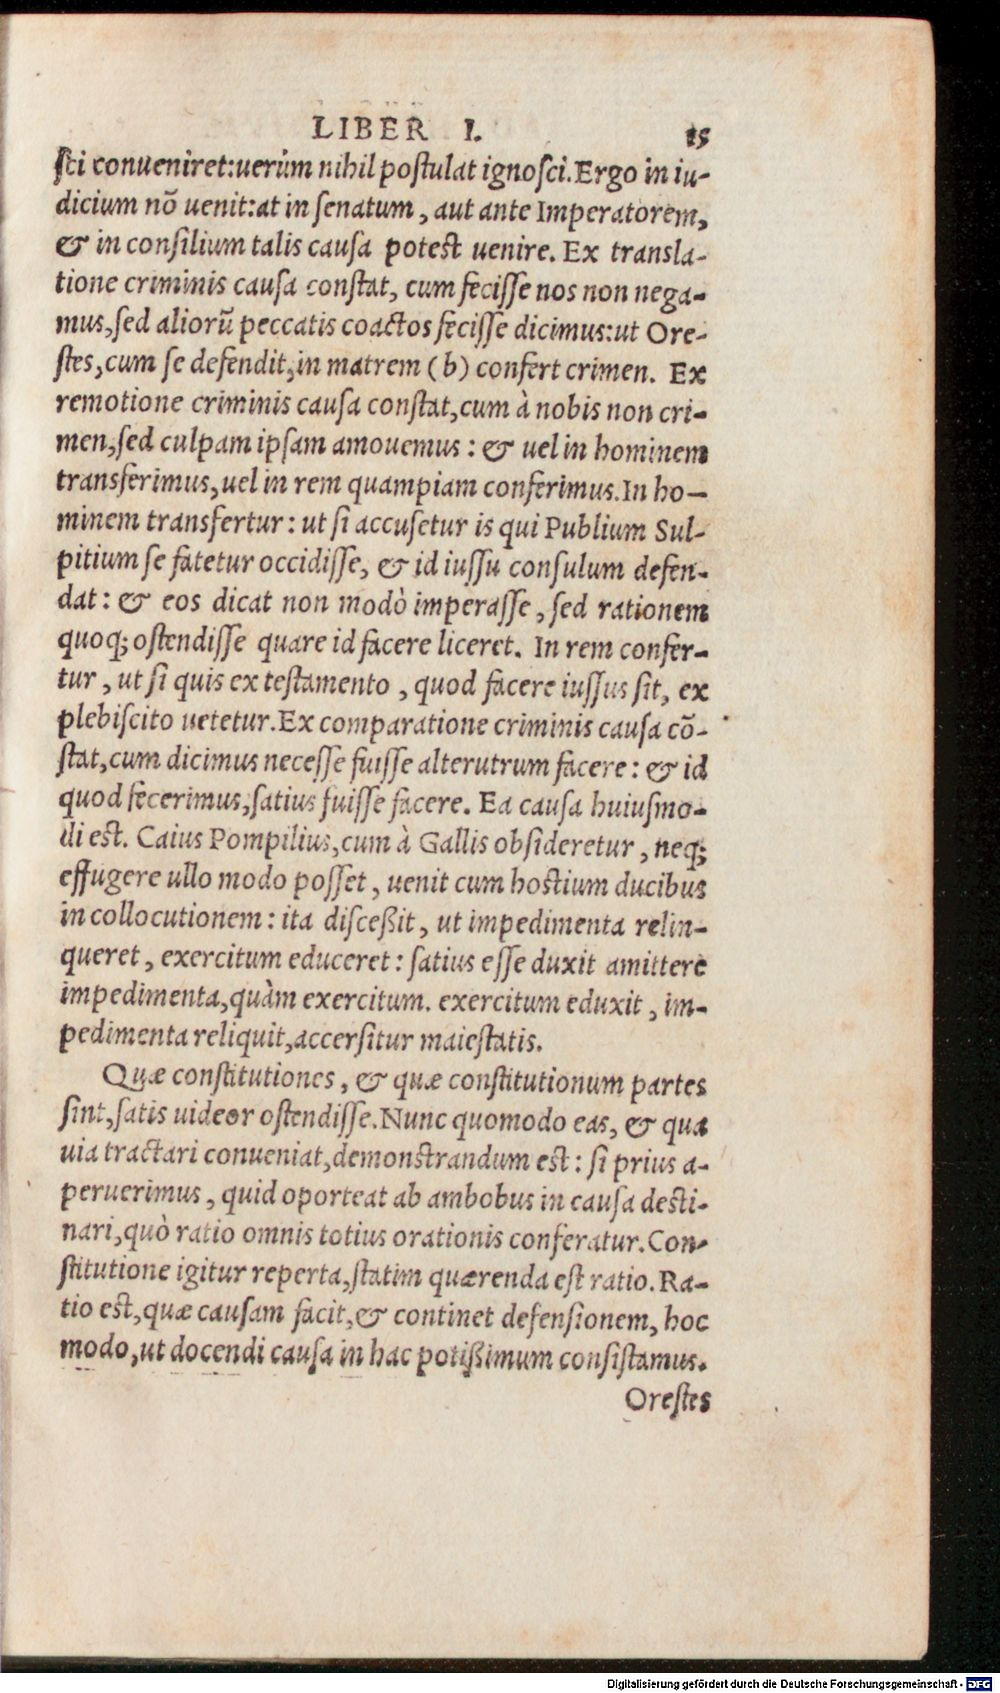 LIBER I. 15
ſci conueniret:uerùm nihil poſtulat ignoſci.Ergo in iu-
dicium nõ uenit:at in ſenatum, aut ante Imperatorem,
& in conſilium talis cauſa poteſt uenire. Ex transla-
tione criminis cauſa conſtat, cum feciſſe nos non nega-
mus,ſed aliorũ peccatis coactos feciſſe dicimus:ut Ore-
ſtes,cum ſe defendit,in matrem (b) confert crimen. Ex
remotione criminis cauſa conſtat,cum à nobis non cri-
men,ſed culpam ipſam amouemus: & uel in hominem
transferimus,uel in rem quampiam conferimus.In ho-
minem transfertur: ut ſi accuſetur is qui Publium Sul-
pitium ſe fatetur occidiſſe, & id iuſſu conſulum defen-
dat: & eos dicat non modò imperaſſe, ſed rationem
quoq; oſtendiſſe quare id facere liceret. In rem confer-
tur, ut ſi quis ex teſtamento, quod facere iuſſus ſit, ex
plebiſcito uetetur.Ex comparatione criminis cauſa cõ-
ſtat,cum dicimus neceſſe fuiſſe alterutrum facere: & id
quod fecerimus,ſatius fuiſſe facere. Ea cauſa huiuſmo-
di eſt. Caius Pompilius,cum à Gallis obſideretur, neq;
effugere ullo modo poſſet, uenit cum hoſtium ducibus
in collocutionem: ita diſceßit, ut impedimenta relin-
queret, exercitum educeret: ſatius eſſe duxit amittere
impedimenta,quàm exercitum. exercitum eduxit, im-
pedimenta reliquit,accerſitur maieſtatis.
Quæ conſtitutiones, & quæ conſtitutionum partes
ſint,ſatis uideor oſtendiſſe.Nunc quomodo eas, & qua
uia tractari conueniat,demonſtrandum eſt: ſi prius a-
peruerimus, quid oporteat ab ambobus in cauſa deſti-
nari,quò ratio omnis totius orationis conferatur.Con-
ſtitutione igitur reperta,ſtatim quærenda eſt ratio.Ra-
tio eſt,quæ cauſam facit,& continet defenſionem, hoc
modo,ut docendi cauſa in hac potißimum conſiſtamus.
Oreſtes
Digitalisierung gefördert durch die Deutsche Forschungsgemeinschaft - DFG